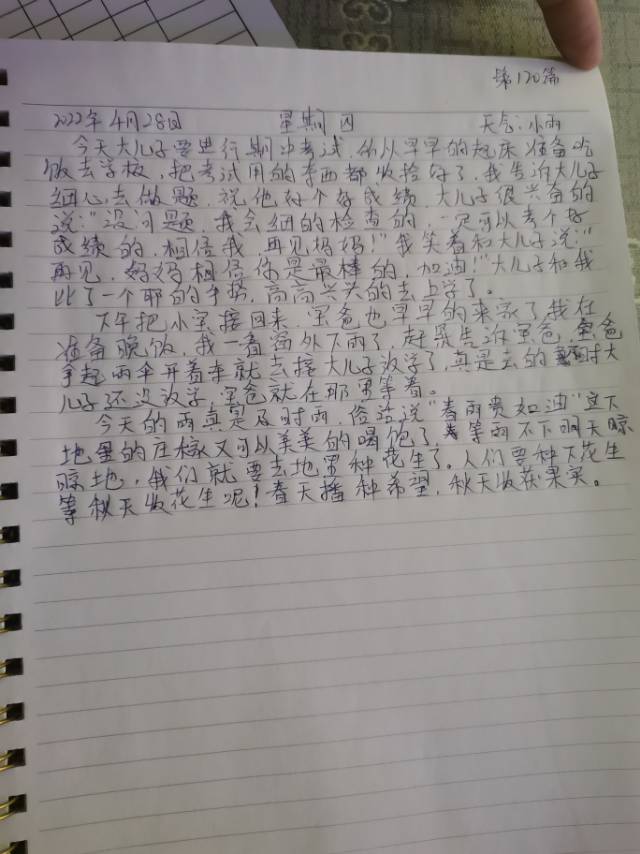 第120篇
2022年4月28日 星期四 天气:小雨
今天大儿子要进行期中考试,所以早早的起床准备吃
饭去学校,把考试用的东西都收拾好了,我告诉大儿子
细心去做题,祝他考个好成绩,大儿子很兴奋的
说:"没问题,我会细的检查的,一定可以考个好
成绩的,相信我,再见妈妈!"我笑着和大儿子说:"
再见,妈妈相信你是最棒的,加油!"大儿子和我
比了一个耶的手势,高高兴兴的去上学了。
下午把小宝接回来,宝爸也早早的来家了,我在
准备晚饭,我一看窗外下雨了,赶紧告诉宝爸,宝爸
拿起雨伞开着车就去接大儿子放学了,真是去的时大
儿子还没放学,宝爸就在那里等着。
今天的雨真是及时雨,俗话说"春雨贵如油"这下
地里的庄稼又可以美美的喝饱了,等雨不下明天晾
晾地,我们就要去地里种花生了。人们要种下花生
等秋天收花生呢!春天播种希望,秋天收获果实。